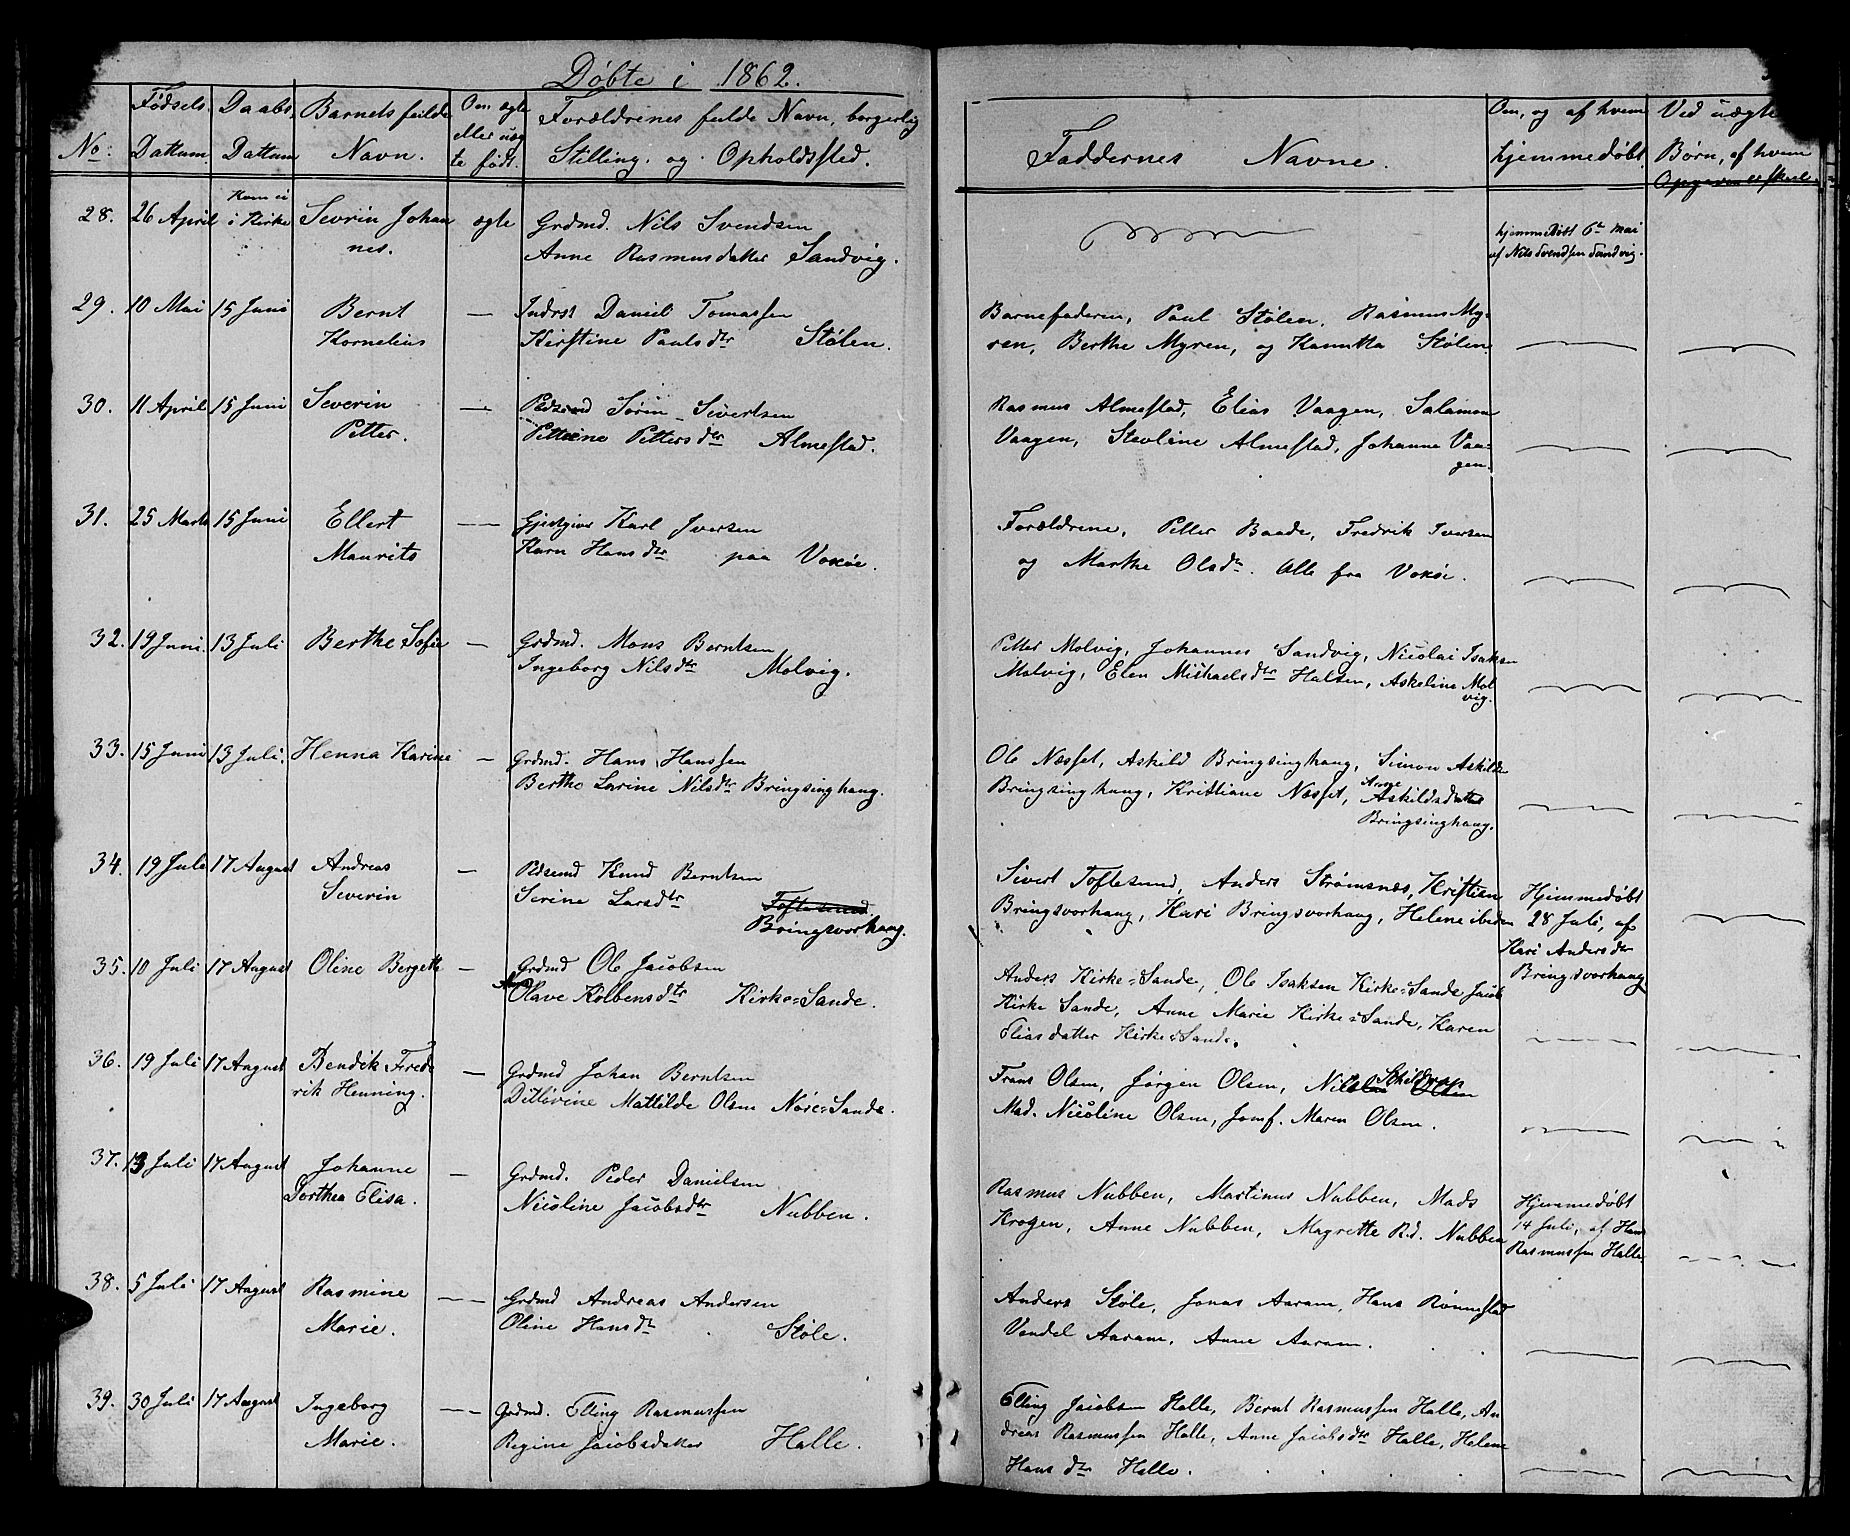 Døbte i 1862.
No:
Fødsels Dattum
Daabs Dattum
Barnets fulde Navn.
Om ægte eller uægte født.
Forældrenes fulde Navn, borgerlig Stilling. og Opholdsted.
Faddernes Navne.
Om, og af hvem hjemmedøbt
Ved uægte Børn, af hvem
28. 26 April Kom ei i Kirke Sevrin Johan ægte Grdmd. Nils Svendsen hjemmedøbt 6te Mai
nes. Anne Rasmusdatter Sandvig. af Nils Svendsen Sandvig.
29. 10 Mai 15 Juni Bernt — Indrst Daniel Tomassen Barnefaderen, Paul Stølen. Rasmus My-
Kornelius Kirstine Paulsdtr Stølen. ren, Berthe Myren, og Stølen
30. 11 April 15 Juni Severin — Pdsmd Sørin Sivertsen Rasmus Almestad, Elias Vaagen, Salamon
Petter. Pettrine Pettersdtr Almestad. Vaagen, Stevline Almestad, Johanne Vaa-
gen.
31. 25 Marts 15 Juni Ellert — Gjestgiver Karl Iversen Forældrene, Petter Baade, Fredrik Iversen
Maurits Karn Hansdtr paa Voksøe. og Marthe Olsdtr. Alle fra Voksø.
32. 19 Juni. 13 Juli Berthe Sofie — Grdmd. Mons Berntsen Petter Molvig, Johannes Sandvig, Nicolai Isaksen
Ingeborg Nilsdtr Molvig. Molvig, Elen Michaelsdtr Halsen, Askeline Mol
vig.
33. 15 Juni 13 Juli. Henna Karine — Grdmd. Hans Hanssen Ole Næsset, Askild Bringsinghaug, Simon Askilds
Berthe Larine Nilsdtr Bringsinghaug. Bringsinghaug, Kristiane Næsset, Anne Askildsdatter
Bringsinghaug.
34. 19 Juli 17 August Andreas — Pdsmd Knud Berntsen Sivert Toftesund, Anders Strømsnes, Kristian Hjemmedøbt
Severin Serine Larsdtr Toftesund Bringsvorhaug, Kari Bringsvorhaug, Helene ibidem 28 Juli, af
Bringsvorhaug. Kari Andersdtr
Bringsvorhaug
35. 10 Juli 17 August Oline Bergette — Grdmd Ole Jacobsen Anders Kirke-Sande, Ole Isaksen Kirke-Sande Jacob
Olave Kolbensdtr Kirke-Sande. Kirke Sande, Anne Marie Kirke-Sande, Karen
Eliasdatter Kirke-Sande.
36. 19 Juli 17 August Bendik Fred — Grdmd Johan Berntsen Frans Olsen, Jørgen Olsen,
rik Henning. Ditlevine Mattilde Olsen Nøre-Sande. Mad. Nicoline Olsen, Jomf. Maren Olsen.
37. 13 Juli 17 August Johanne — Grdmd. Peder Danielsen Rasmus Nubben, Martinus Nubben, Mads Hjemmedøbt
Dorthea Elisa. Nicoline Jacobsdtr Nubben. Krogen, Anne Nubben, Magrette R.d. Nubben 14 Juli, af Hans
Rasmussen Halle
38. 5 Juli 17 August Rasmine — Grdmd Andreas Andersen Anders Støle, Jonas Aaram, Hans Rønnestad
Marie. Oline Hansdtr Støle. Vendel Aaram, Anne Aaram.
39. 30 Juli 17 August Ingeborg — Grdmd. Elling Rasmussen Elling Jacobsen Halle, Bernt Rasmussen Halle, An
Marie. Regine Jacobsdatter Halle. dreas Rasmussen Halle, Anne Jacobsdtr Halle, Helene
Hansdtr Halle.